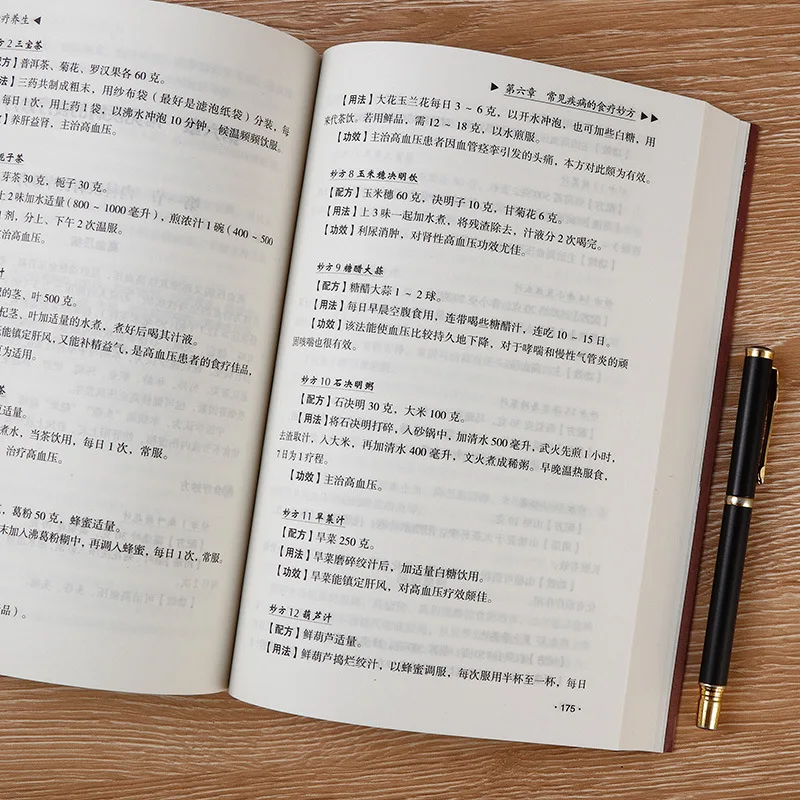 疗养生◀
方2 三宝茶
方】普洱茶、菊花、罗汉果各 60 克。
法】三药共制成粗末，用纱布袋（最好是滤泡纸袋）分装，每
每日 1 次，用上药 1 袋，以沸水冲泡 10 分钟，候温频频饮服。
】养肝益肾，主治高血压。
栀子茶
芽茶 30 克，栀子 30 克。
上 2 味加水适量（800 ~ 1000 毫升），煎浓汁 1 碗（400 ~ 500
1 剂，分上、下午 2 次温服。
治高血压。
汁
的茎、叶 500 克。
杞茎、叶加适量的水煮，煮好后喝其汁液。
能镇定肝风，又能补精益气，是高血压患者的食疗佳品，
为适用。
茶
适量。
煮水，当茶饮用，每日 1 次，常服。
治疗高血压。
葛粉 50 克，蜂蜜适量。
末加入沸葛粉糊中，再调入蜂蜜，每日 1 次，常服。
品）。
▶ 第六章 常见疾病的食疗妙方 ▶▶
【用法】大花玉兰花每日 3 ~ 6 克，以开水冲泡，也可加些白糖，用
来代茶饮。若用鲜品，需 12 ~ 18 克，以水煎服。
【功效】主治高血压患者因血管痉挛引发的头痛，本方对此颇为有效。
妙方 8 玉米穗决明饮
【配方】玉米穗 60 克，决明子 10 克，甘菊花 6 克。
【用法】上 3 味一起加水煮，将残渣除去，汁液分 2 次喝完。
【功效】利尿消肿，对肾性高血压功效尤佳。
妙方 9 糖醋大蒜
【配方】糖醋大蒜 1 ~ 2 球。
【用法】每日早晨空腹食用，连带喝些糖醋汁，连吃 10 ~ 15 日。
【功效】该法能使血压比较持久地下降，对于哮喘和慢性气管炎的顽
固咳喘也很有效。
妙方 10 石决明粥
【配方】石决明 30 克，大米 100 克。
【用法】将石决明打碎，入砂锅中，加清水 500 毫升，武火先煎 1 小时，
去渣取汁，入大米，再加清水 400 毫升，文火煮成稀粥。早晚温热服食，
7 日为 1 疗程。
【功效】主治高血压。
妙方 11 旱菜汁
【配方】旱菜 250 克。
【用法】旱菜磨碎绞汁后，加适量白糖饮用。
【功效】旱菜能镇定肝风，对高血压疗效颇佳。
妙方 12 葫芦汁
【配方】鲜葫芦适量。
【用法】鲜葫芦捣烂绞汁，以蜂蜜调服，每次服用半杯至一杯，每日
· 175 ·